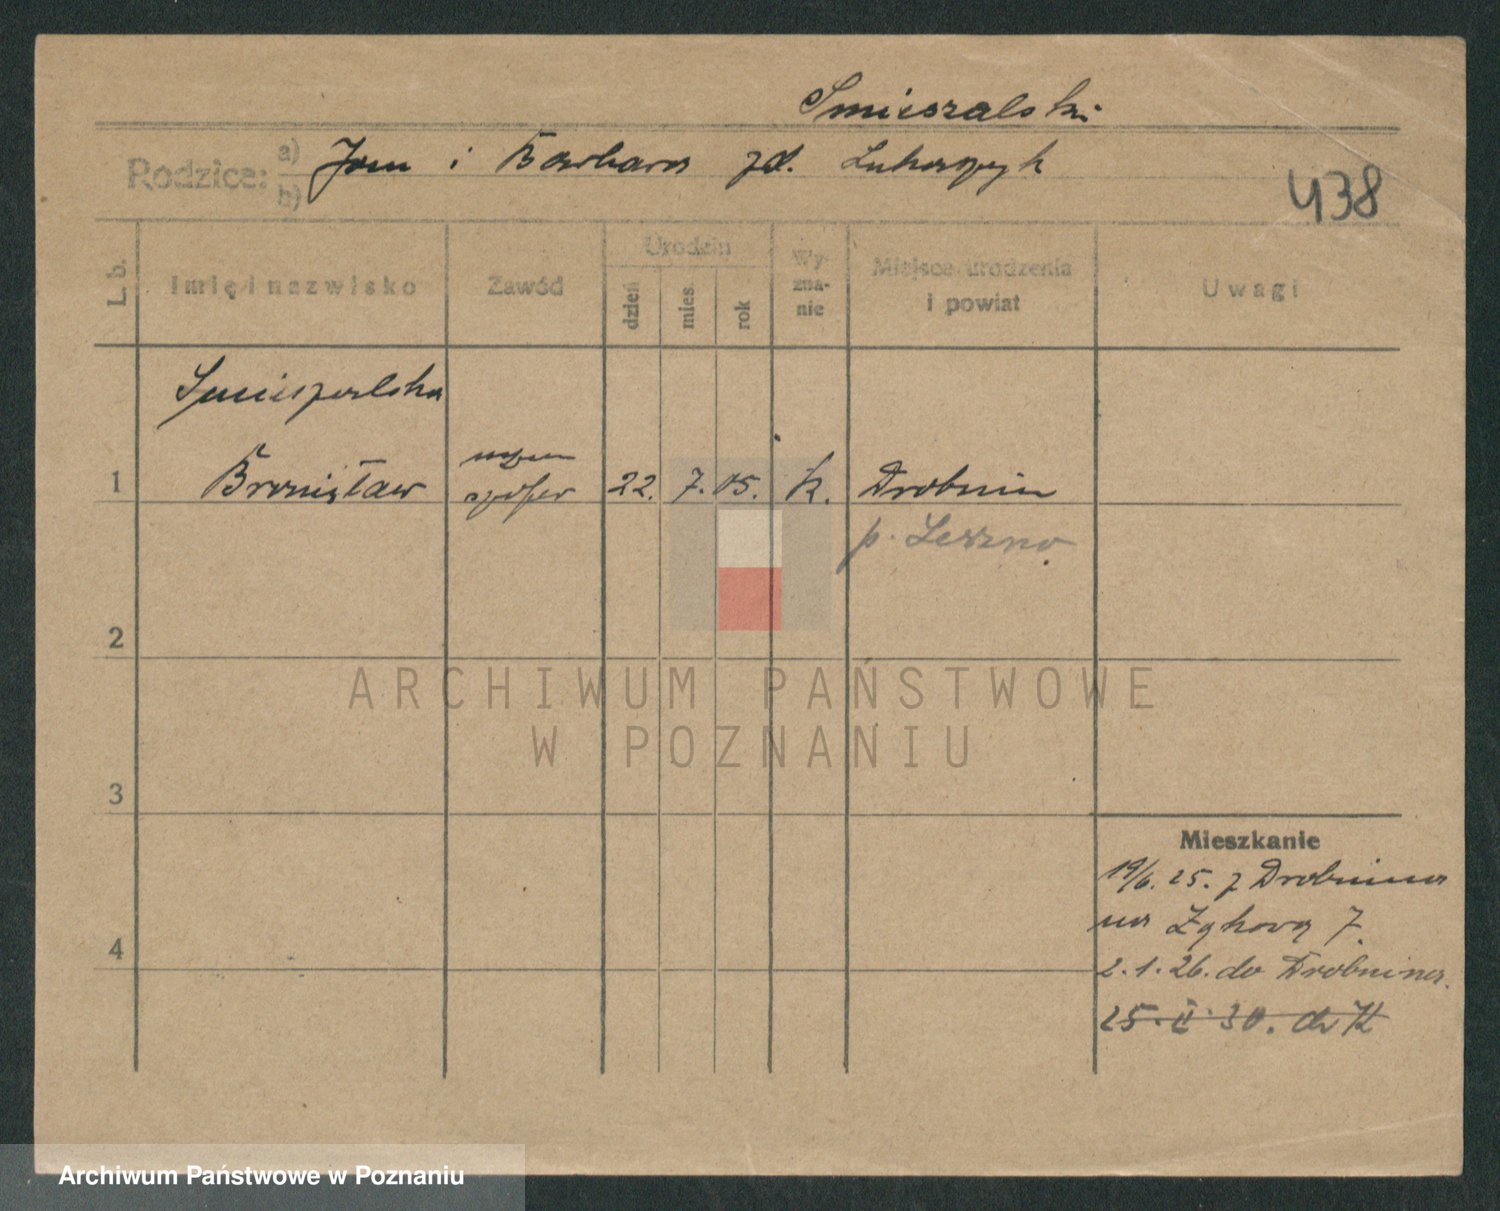 Smieszalski
Rodzice: a) Jan i Barbara zd. Lukaszyk
b)
438
L. b.
Imię i nazwisko
Zawód
Urodzin
dzień
mies.
rok
Wy-
zna-
nie
Miejsce urodzenia
i powiat
Uwagi
1
Bronisław
szofer
22. 7. 05. k. Drobnin
p. Leszno.
2
3
4
Mieszkanie
19/6. 25. z Drobnina
na Żąkową 7.
2. 1. 26. do Drobnina.
25. II. 30. do
ARCHIWUM PAŃSTWOWE
W POZNANIU
Archiwum Państwowe w Poznaniu